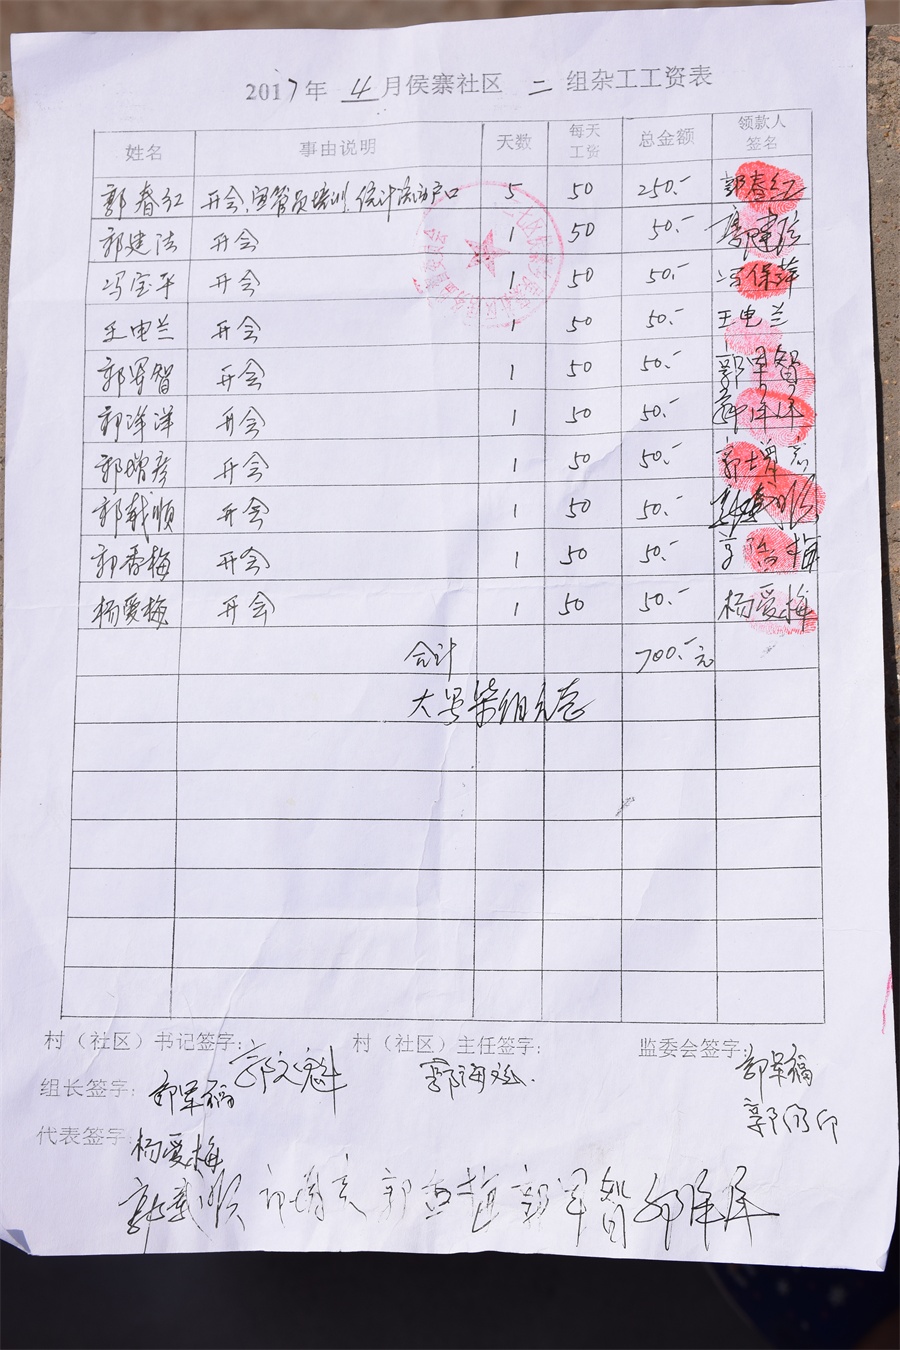 2017年 4月侯寨社区 二 组杂工工资表
姓名 事由说明 天数 每天工资 总金额 领款人签名
郭春红 开会、宣管员培训、统计流动户口 5 50 250.- 郭春红
郭建法 开会 1 50 50.-
冯宝平 开会 1 50 50.- 冯保萍
王电兰 开会 1 50 50.- 王电兰
郭军智 开会 1 50 50.- 郭军智
郭洋洋 开会 1 50 50.- 郭洋洋
郭增彦 开会 1 50 50.-
郭载顺 开会 1 50 50.-
郭香梅 开会 1 50 50.-
杨爱梅 开会 1 50 50.- 杨爱梅
合计 700.-元
大写柒佰元整
村（社区）书记签字: 郭文魁 村（社区）主任签字: 监委会签字: 郭军福
组长签字: 郭军福
代表签字: 杨爱梅
郭载顺 郭军智 郭洋洋